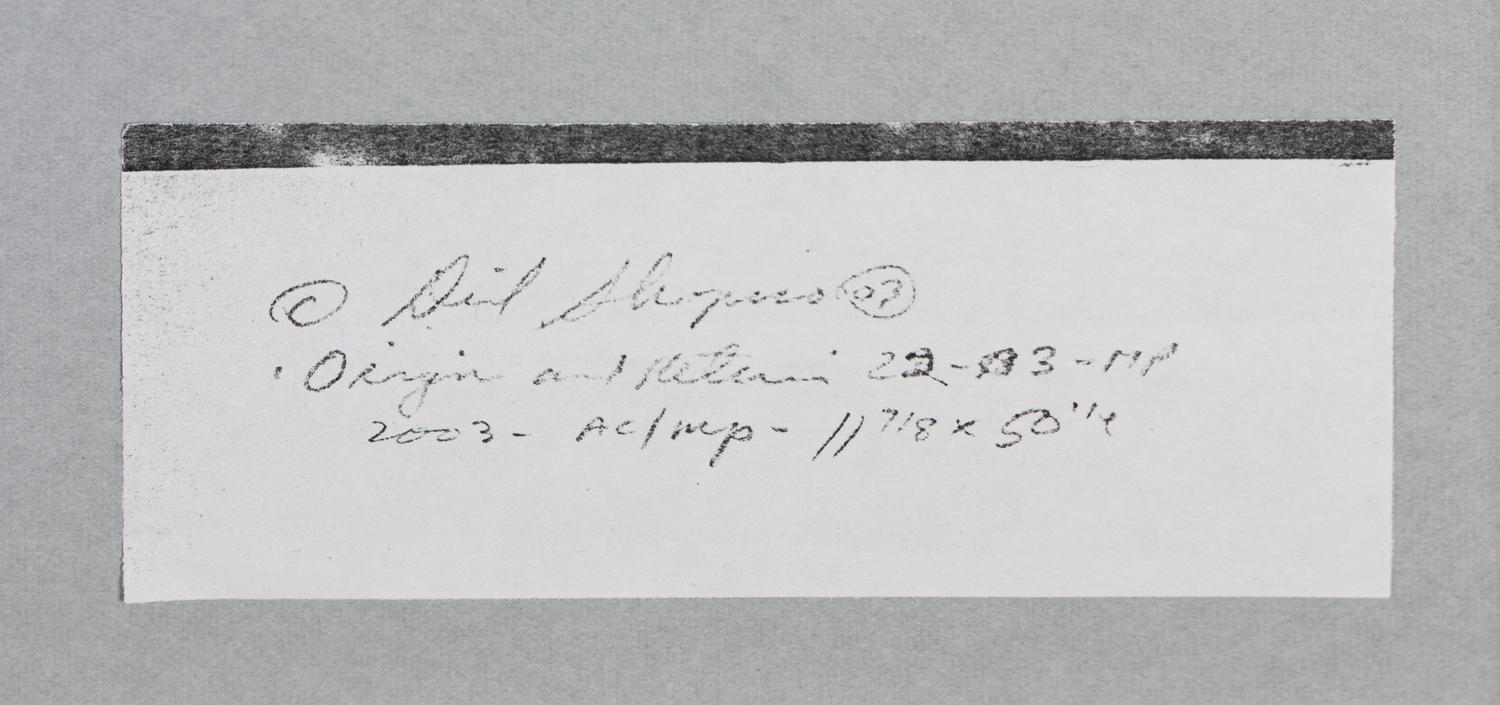 © David Shapiro 03
Origin and Return 22-03-MP
2003 - AC/MP - 11 7/8 x 50 1/4